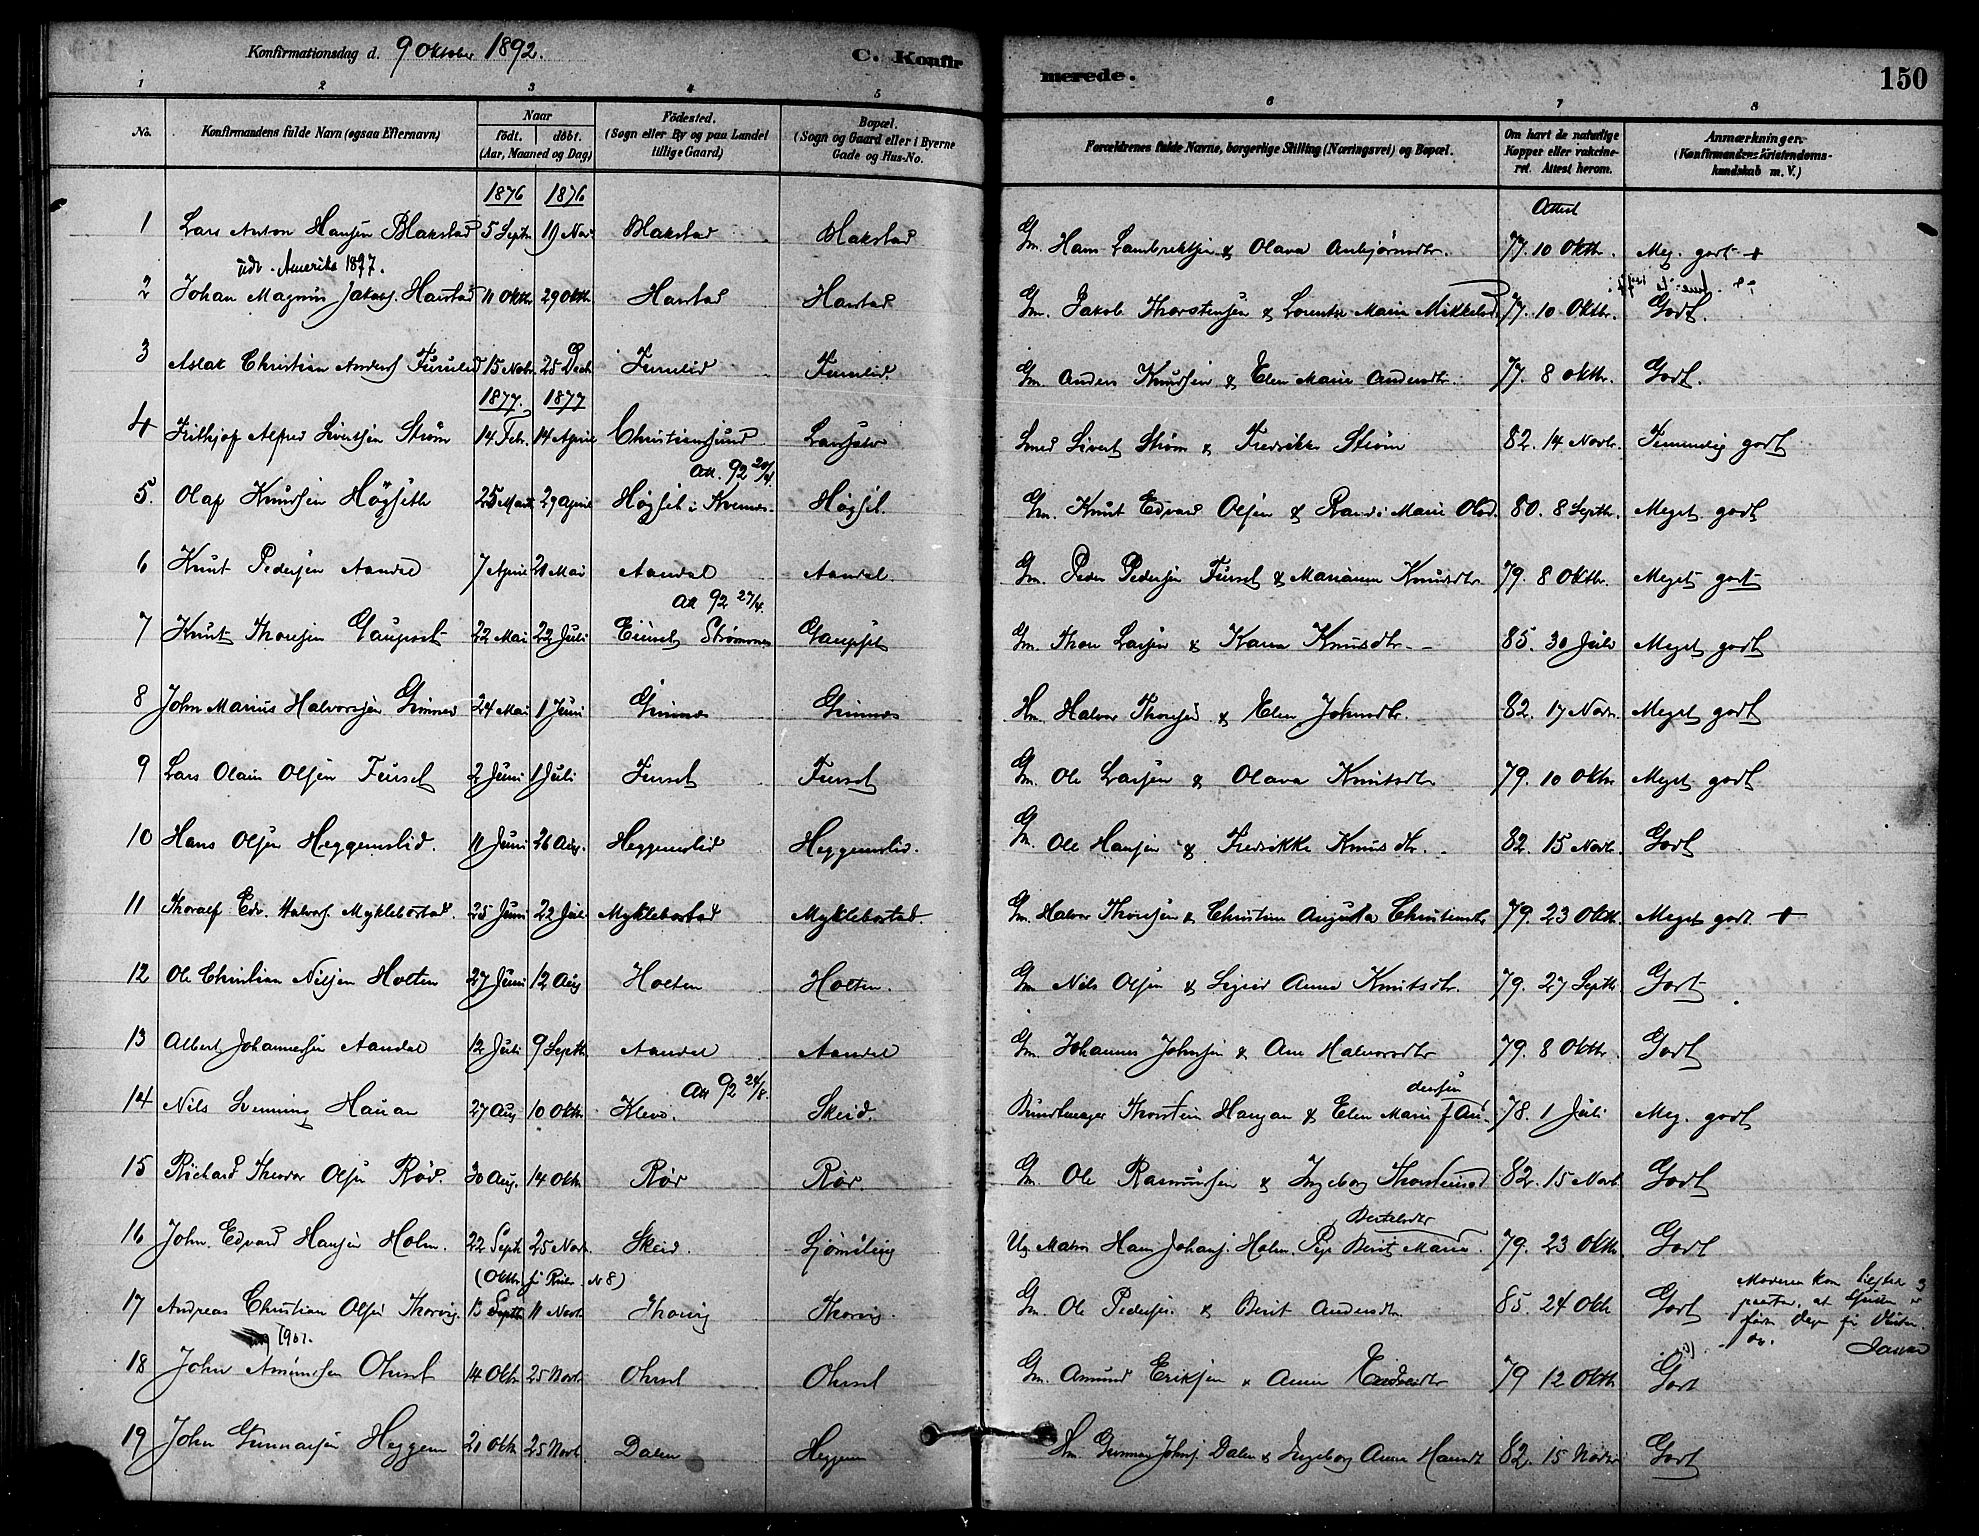 Konfirmationsdag d. 9 Oktober 1892.
C. Konfirmerede.
150
1 2 3 4 5 6 7 8
No. Konfirmandens fulde Navn (ogsaa Efternavn) Naar født. døbt. (Aar, Maaned og Dag) Fødested. (Sogn eller By og paa Landet tillige Gaard) Bopæl. (Sogn og Gaard eller i Byerne Gade og Hus-No. Forældrenes fulde Navne, borgerlige Stilling (Næringsvei) og Bopæl. Om havt de naturlige Kopper eller vakcineret. Attest herom. Anmærkninger. (Konfirmandens Kristendomskundskab m. V.)
1876 1876 Attest
1 Lars Anton Hansen Blakstad 5 Septr 19 Nov. Blakstad Blakstad Gm. Hans Lambrektsen & Olava Anbjørnsdtr. 77. 10 Oktbr. Meg. godt +
udv. Amerika 1897.
2 Johan Magnus Jakobs. Harstad 11 Oktbr 29 Oktb Harstad Harstad Gm. Jakob Thorstensen & Lorentze Marie Mikkelsd 77. 10 Oktbr. Godt.
3 Aslak Christian Anders. Furulid 15 Novbr. 25 Decb Furulid Furulid. Gm Anders Knudsen & Elen Marie Andersdtr. 77. 8 Oktbr. Godt.
1877. 1877
4 Frithjof Alfred Sivertsen Strøm 14 Feb. 14 April Christiansund Smed Sivert Strøm & Fredrikke Strøm 82. 14 Novbr. Temmelig godt
Att. 92 20/4.
5. Olaf Knudsen Høgseth 25 Marts 29 April Høgset i Kvernes. Høgset. Gm. Knut Edvard Olsen & Randi Marie Olsd. 80. 8 Septbr. Meget godt
6 Knut Pedersen Aandal 7 April 21 Mai Aandal Aandal Gm Peder Pedersen Furset & Marianne Knudsdtr. 79. 8 Oktbr. Meget godt
Att 92 27/4.
7 Knut Thoresen Gaupset 22 Mai 22 Juli Eiset Strømsnes Gaupset Gm. Thore Larsen & Karen Knudsdtr. 85. 30 Juli Meget godt
8 John Marius Halvorsen Gimnes 24 Mai 1 Juni Gimnes Gimnes Hm Halvor Thoresen & Elen Johnsdtr. 82. 17 Novbr. Meget godt
9 Lars Olaus Olsen Furset 2 Juni 1 Juli Furset Furset Gm. Ole Larsen & Olava Knutsdtr 79. 10 Oktbr Meget godt
10 Hans Olsen Heggemslid. 11 Juni 26 Aug. Heggemslid Heggemslid. Gm Ole Hansen & Fredrikke Knudsdtr. 82. 15 Novbr. Godt
11 Thoralf Edv. Halvors. Myklebostad. 25 Juni 22 Juli Myklebostad Myklebostad Gm. Halvor Thoresen & Christine Augusta Christiansdtr 79. 23 Oktb. Meget godt +
12 Ole Christian Nilsen Holten 27 Juni 12 Aug Holten Holten. Gm Nils Olsen & Sigrid Anna Knutsdtr. 79. 27 Septbr. Godt
13 Albert Johannesen Aandal 12 Juli 9 Septbr Aandal Aandal Gm Johannes Johnsen & Ane Halvorsdtr 79. 8 Oktbr. Godt
Att 92 24/8.
14 Nils Svenning Haugan 27 Aug 10 Oktb. Kleve. Skeid. Buntmager Thorstein Haugan & Elen Marie f. Andersen 78. 1 Juli Meg. godt
15 Richard Theodor Olsen Rød. 30 Aug. 14 Oktb Rød Rød. Gm. Ole Rasmussen & Ingeborg Thorstensd 82. 15 Novb. Godt
16 John Edvard Hansen Holm. 22 Septb 25 Novb. Skeid. Sjømæling Ug. Matros Hans Johans. Holm, Pige Berit Marie Bertelsdtr 79. 23 Oktb. Godt
(Oktbr.
N 8)
17 Andreas Christian Olsen Thorvig. 13 Septbr 11 Novbr Thorvig Thorvig. Gm. Ole Pedersen & Berit Andersdtr 85. 24 Oktb Godt
1901.
18 John Amundsen Ohrset 14 Oktb. 25 Novbr. Ohrset Ohrset Gm. Amund Eriksen & Anne 79 12 Oktb. Godt
19 John Gunnarsen Heggem 21 Oktb 25 Novb. Dalen Heggem Hm Gunnar Johns. Dalen & Ingeborg Anne Hansdtr 82. 15 Novbr. Godt